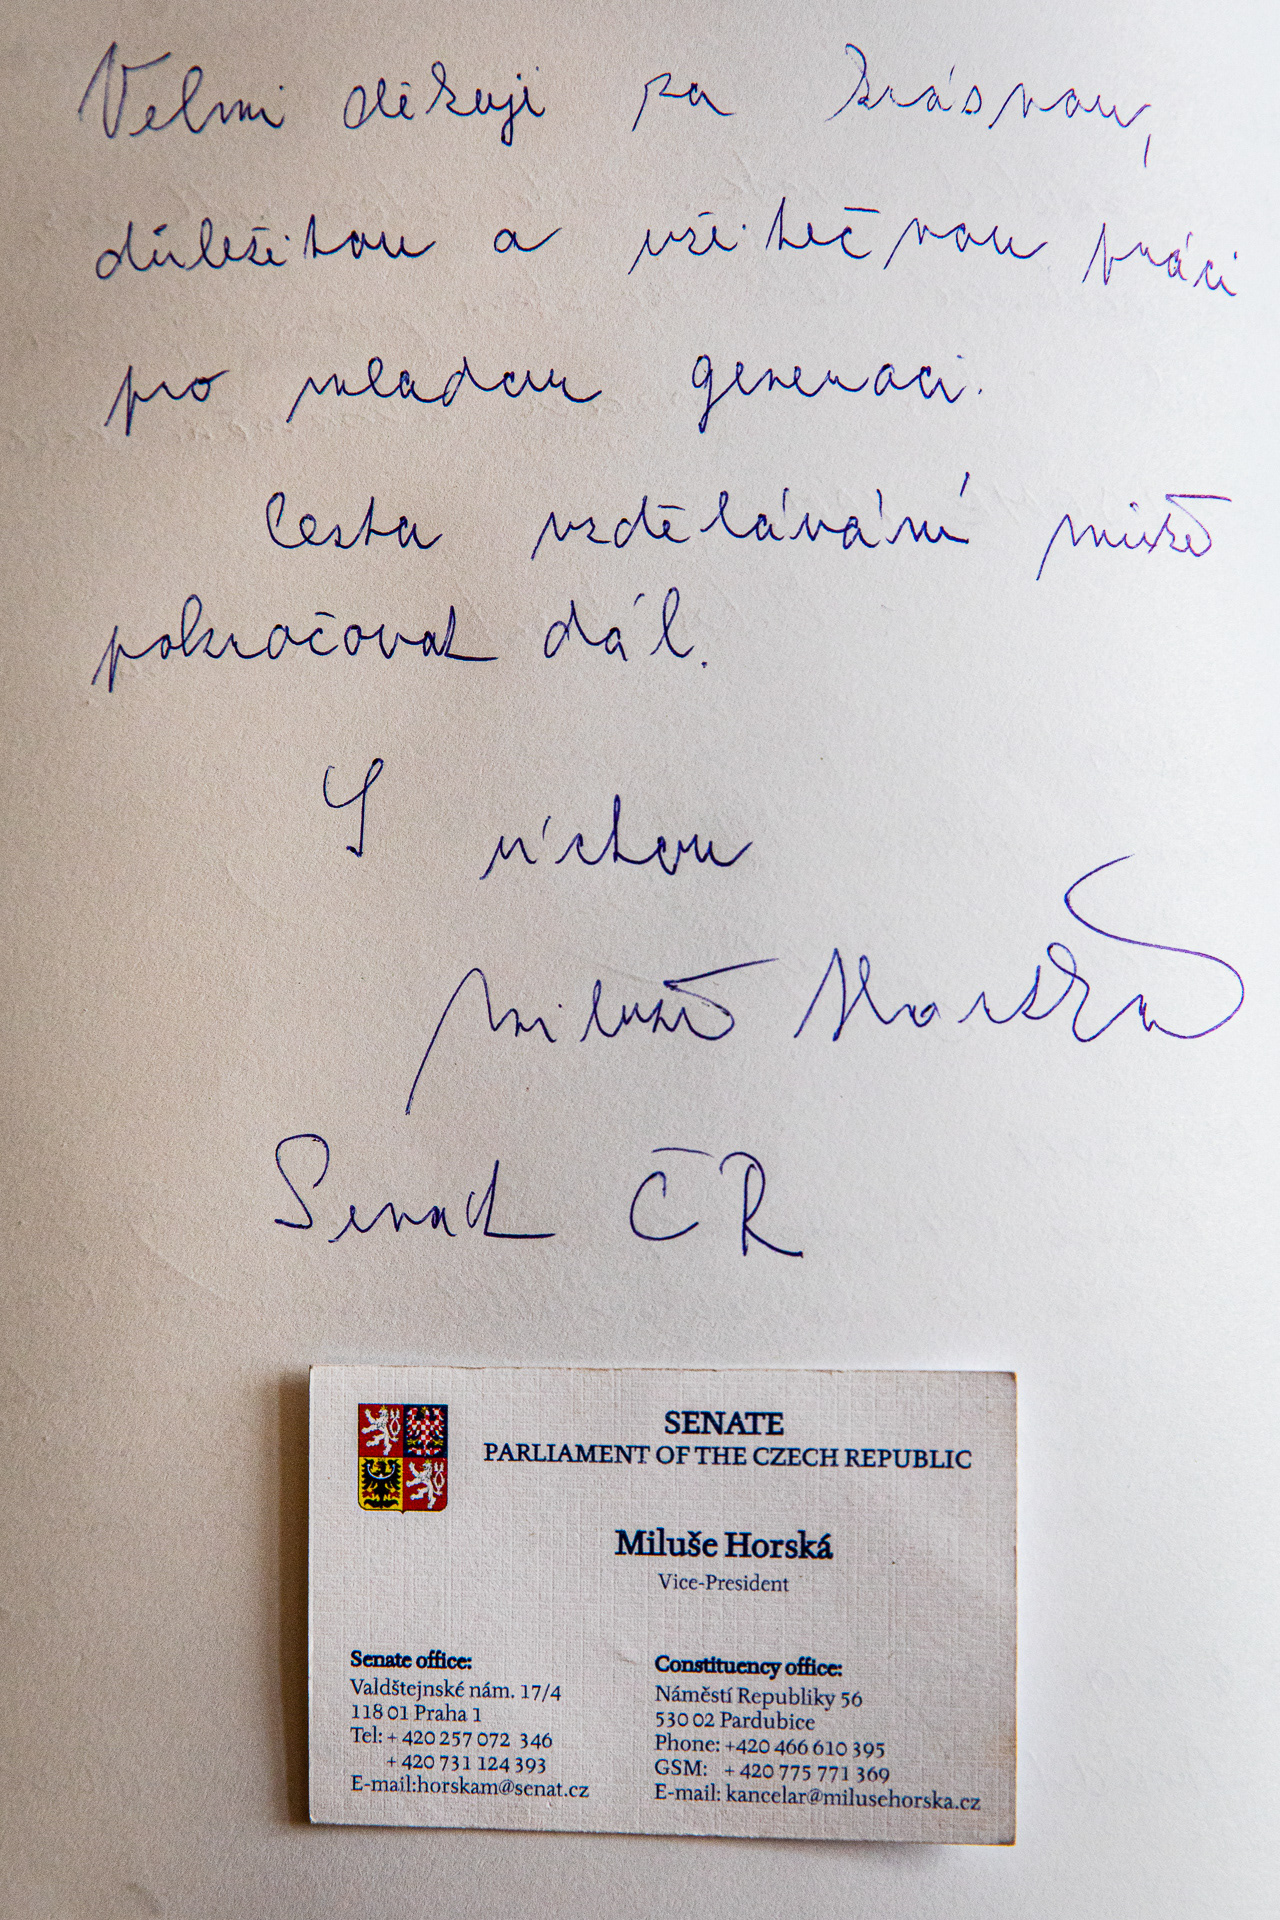 Velmi děkuji za krásnou,
důležitou a užitečnou práci
pro mladou generaci.
Cesta vzdělávání může
pokračovat dál.
S úctou
Miluše Horská
Senát ČR
SENATE
PARLIAMENT OF THE CZECH REPUBLIC
Miluše Horská
Vice-President
Senate office:
Valdštejnské nám. 17/4
118 01 Praha 1
Tel: + 420 257 072 346
+ 420 731 124 393
E-mail:horskam@senat.cz
Constituency office:
Náměstí Republiky 56
530 02 Pardubice
Phone: +420 466 610 395
GSM: + 420 775 771 369
E-mail: kancelar@milusehorska.cz